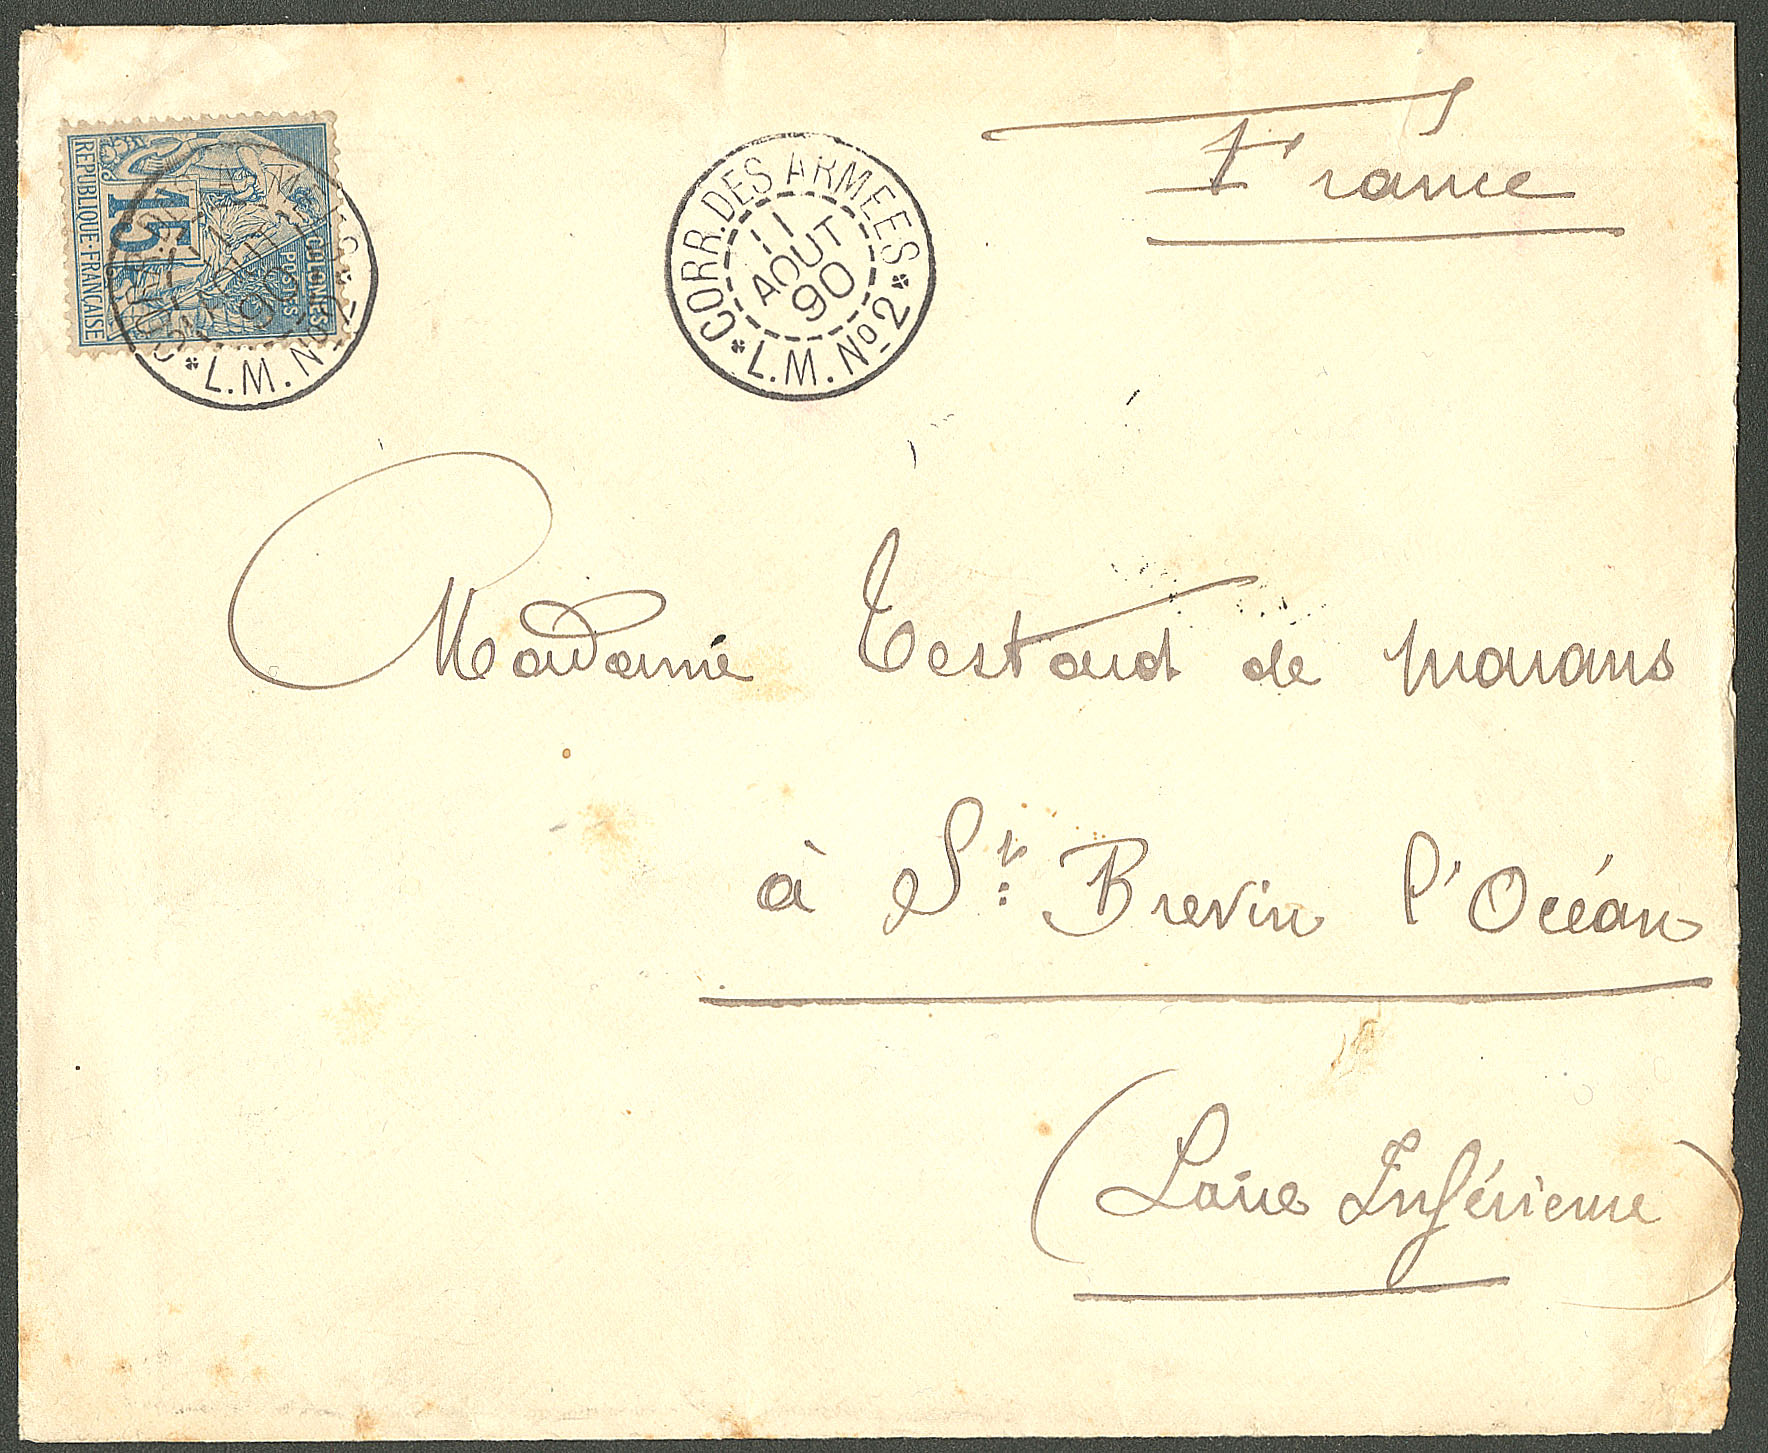 France
RÉPUBLIQUE·FRANÇAISE
15
COLONIES
POSTES
CORR. DES ARMEES
11
AOUT
90
L.M. Nº 2
90
L.M. Nº 2
Madame Testard de Marans
à St. Brevin l'Océan
(Loire Inférieure)